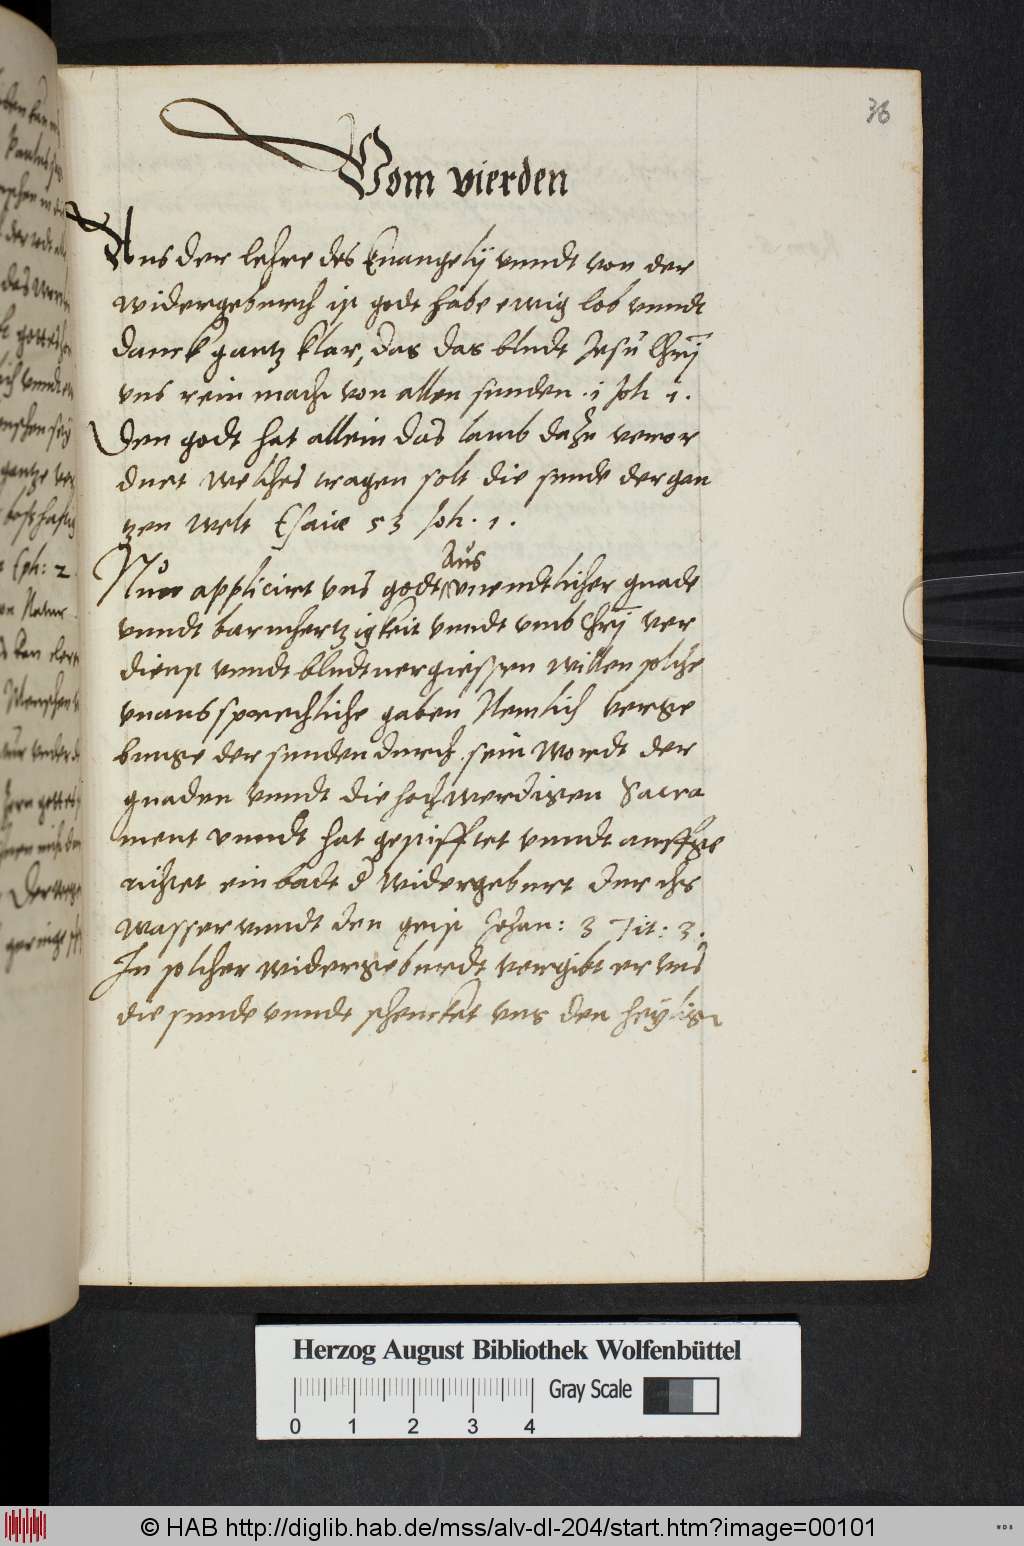 36
Vom vierden
Aus der lehre des Euangelÿ vnndt von der
widergeburdt ist godt habe ewig lob vnndt
danck gantz klar, das das bludt Jesu Chrj
vns rein mach von allen sunden . 1 Joh 1.
Den godt hat allein das lamb dazu veror
dnet welches tragen solt die sunde der gan
tzen welt Esaiæ 53 Joh. 1.
Nůn applicirt vns godt Aus vnendtlicher gnade
vnndt barmhertzigkeit vnndt vmb Chrj ver
dienst vnndt bludtuergiessen willen solche
vnaussprechliche gaben Nemlich verge
bunge der sunden durch sein wordt der
gnaden vnndt die hochwerdigen Sacra
ment vnndt hat gestifftet vnndt auffge
richtet ein badt d widergeburt durchs
wasser vnndt den geist Johan: 3 Tit: 3.
In solcher widergeburdt vergibt er vns
die sunde vnndt schencket vns den heÿlige
Eph: 2
Herzog August Bibliothek Wolfenbüttel
Gray Scale
0 1 2 3 4
© HAB http://diglib.hab.de/mss/alv-dl-204/start.htm?image=00101